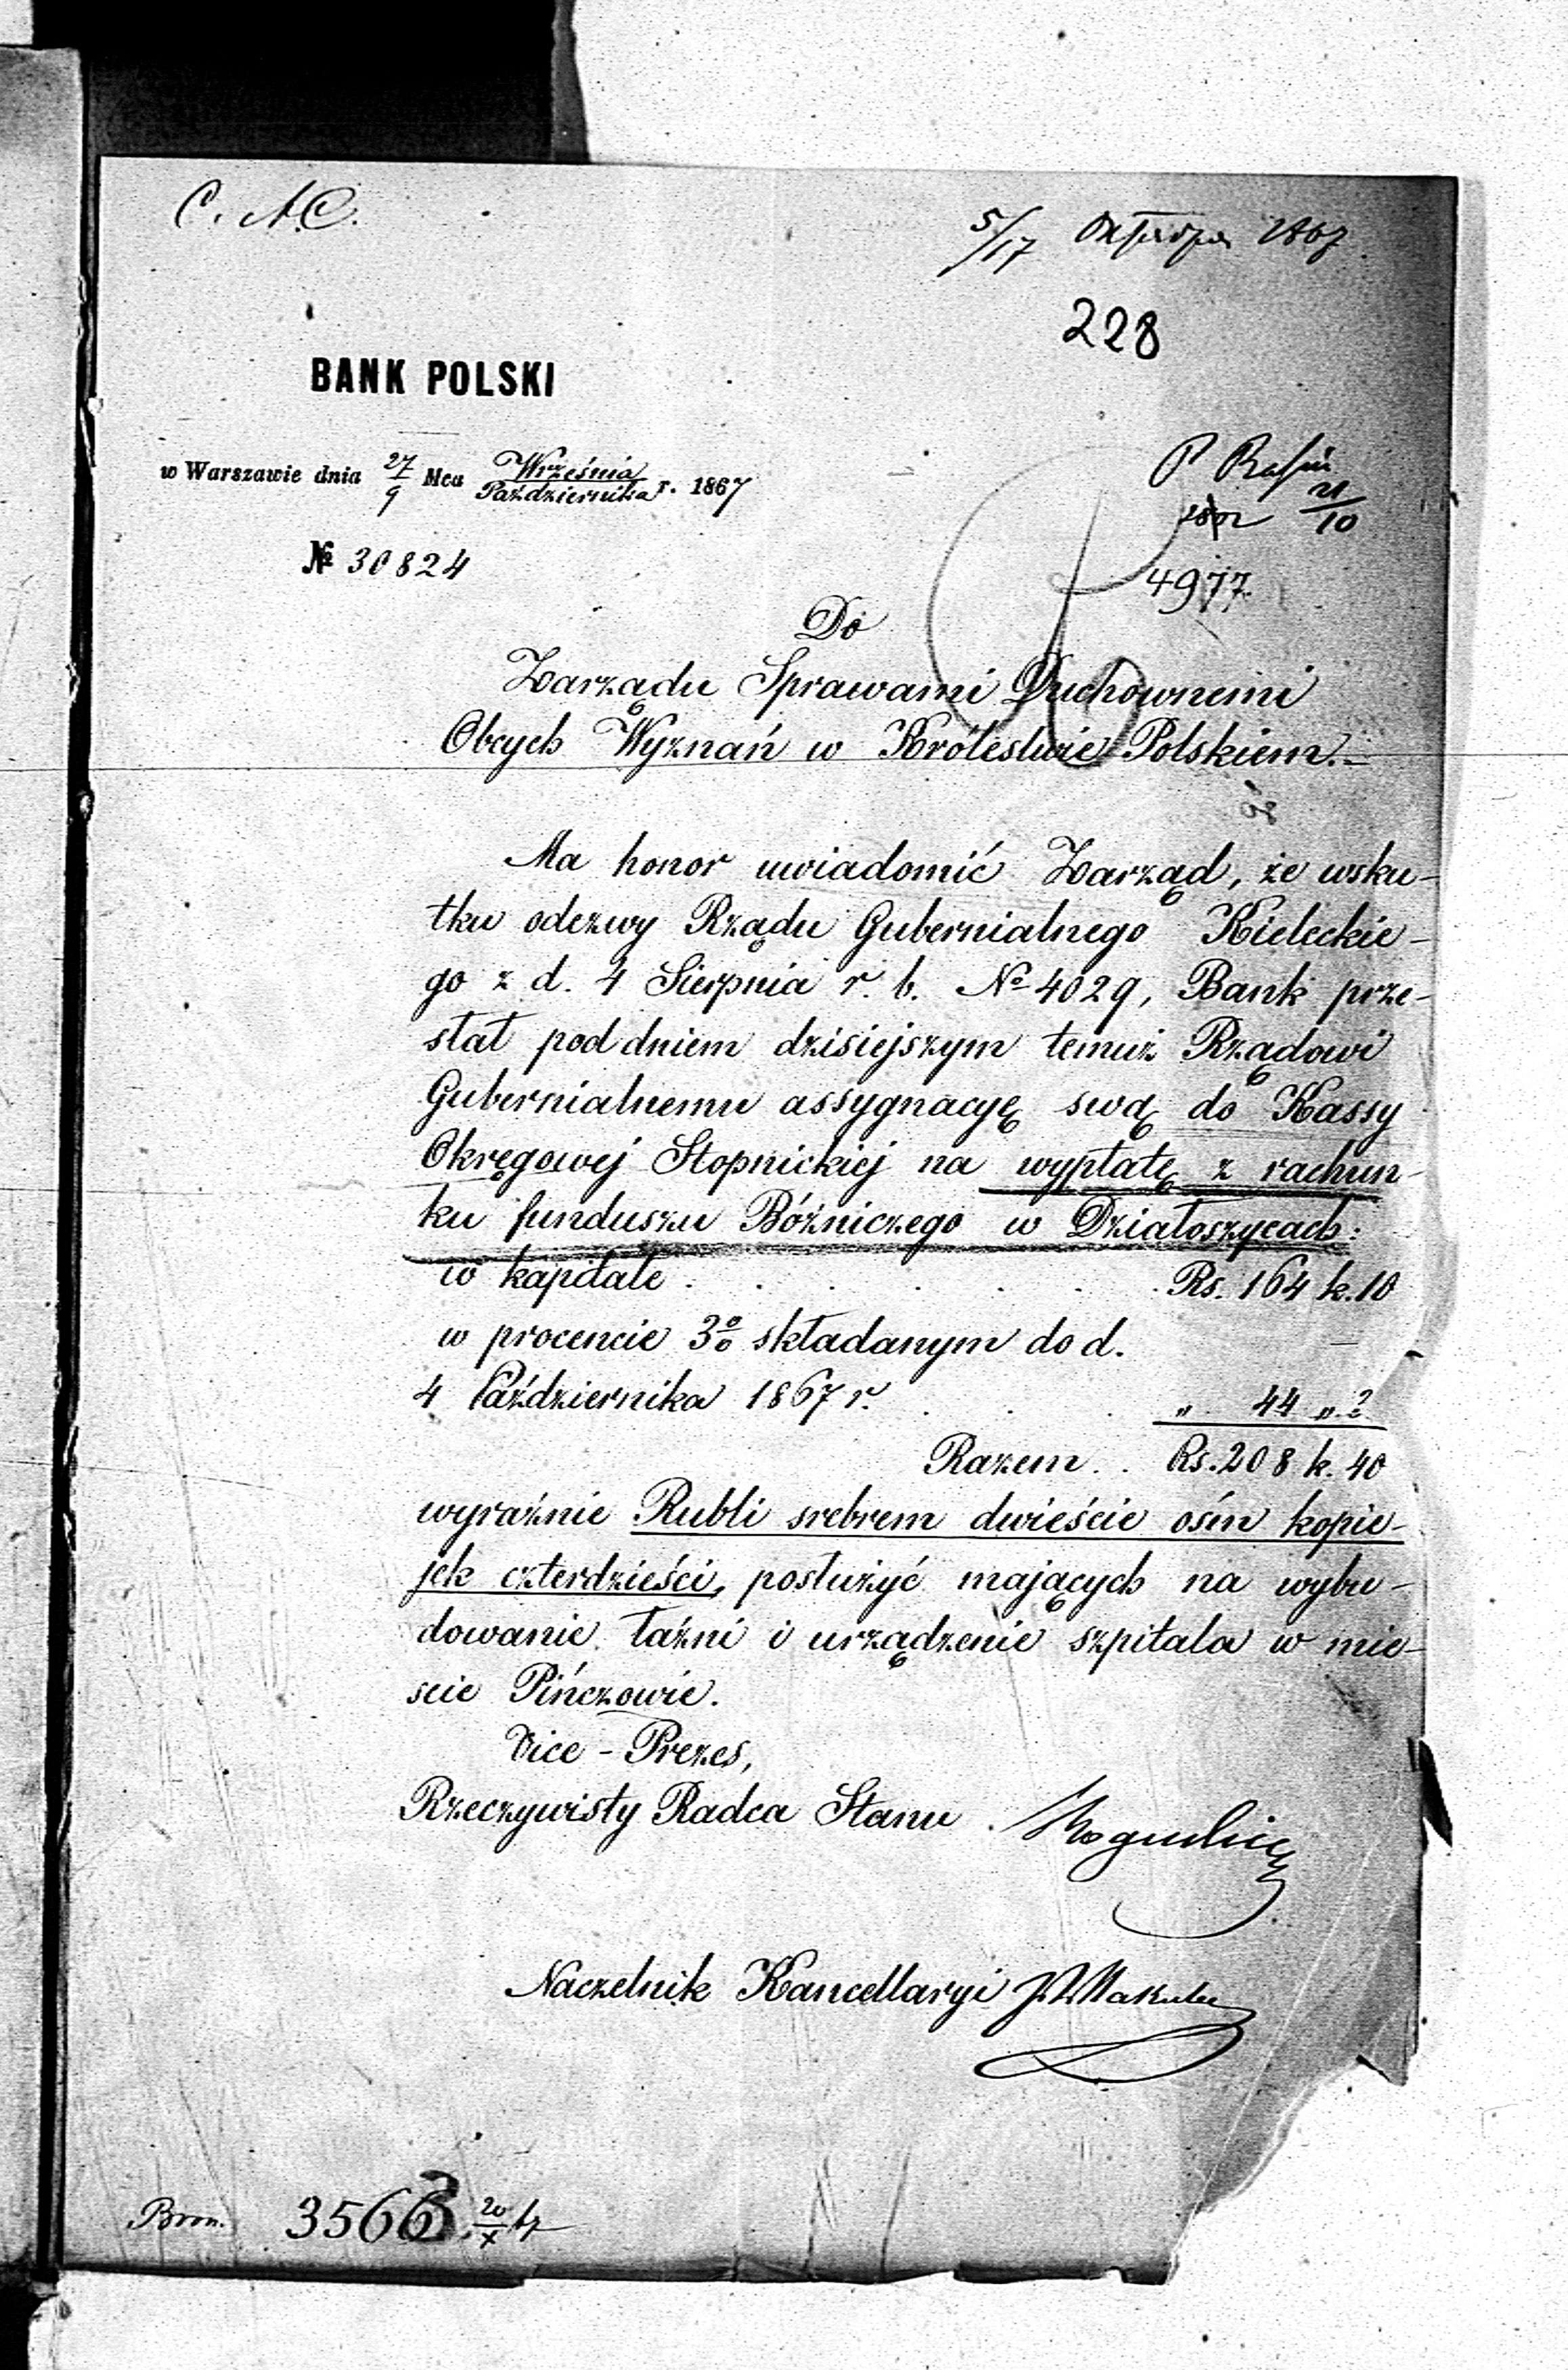 C. A.C.
5/17 Октября 1867
228
BANK POLSKI
w Warszawie dnia 27/9 Mca Września/Października r. 1867
№ 30824
21/10
4977
Do
Zarządu Sprawami Duchownemi
Obcych Wyznań w Królestwie Polskiem.
Ma honor uwiadomić Zarząd, że wsku-
tku odezwy Rządu Gubernialnego Kieleckie-
go z d. 4 Sierpnia r. b. № 4029, Bank prze-
słał pod dniem dzisiejszym temuż Rządowi
Gubernialnemu assygnacyę swą do Kassy
Okręgowej Stopnickiej na wypłatę z rachun-
ku funduszu Bóżniczego w Działoszycach:
w kapitale . . . . . Rs. 164 k. 10
w procencie 3% składanym do d.
4 Października 1867 r. . . . „ 44 „
Razem . . Rs. 208 k. 40
wyraźnie Rubli srebrem dwieście ośm kopie-
jek czterdzieści, posłużyć mających na wybu-
dowanie łaźni i urządzenie szpitala w mie-
scie Pińczowie.
Vice-Prezes,
Rzeczywisty Radca Stanu
Naczelnik Kancellaryi
3566 20/X